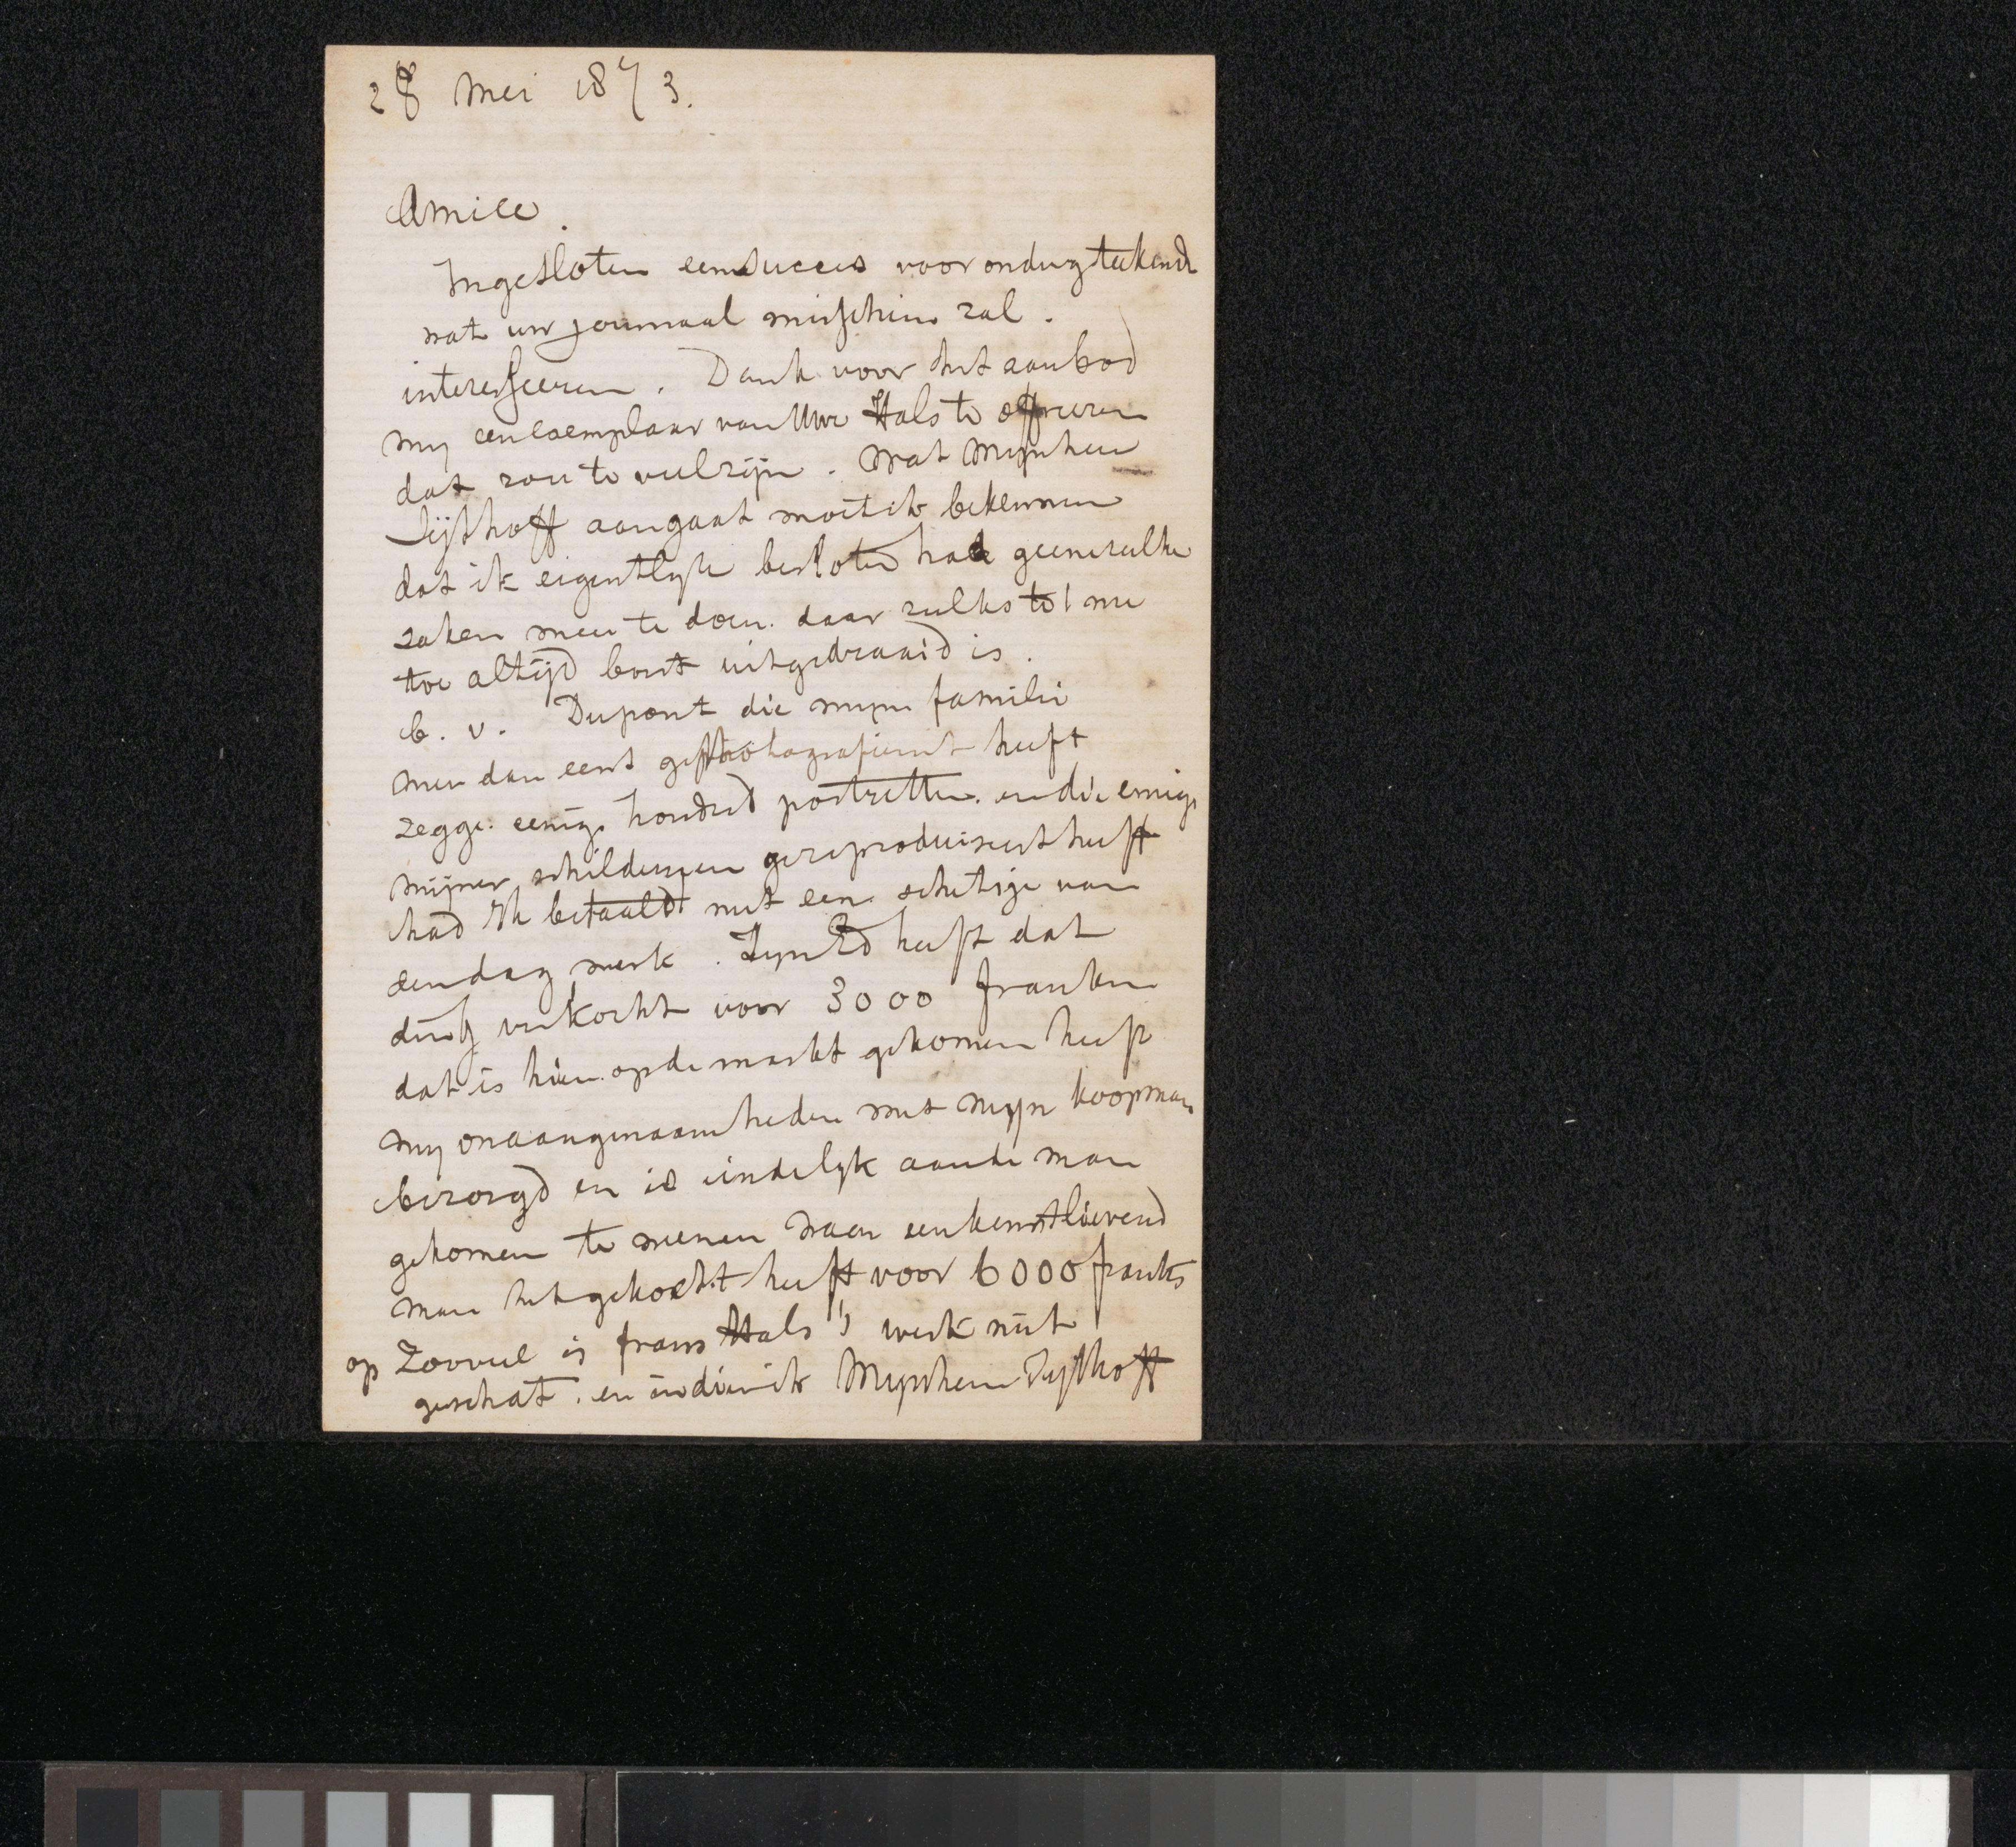 28 Mei 1873.
Amice.
Ingesloten een succes voor ondergteekende
wat uw journaal misschien zal.
interesseeren. Dank voor het aanbod
my een exemplaar van Uwe Hals te offreeren
dat zou te veel zijn. Wat Mynheer
Sijthoff aangaat moet ik bekennen
dat ik eigentlyk besloten had geene zulke
zaken meer te doen. daar zulks tot nu
toe altijd bont uitgedraaid is.
b. v. Dupont die myne familie
meer dan eens gephotografieerd heeft
zegge. eenige honderd portretten. en die eenige
mijner schilderyen gereproduiseert heeft
had ik betaald met een schetsje van
een dag werk. Zyn Ed heeft dat
ding verkocht voor 3000 franken
dat is hier op de markt gekomen heeft
my onaangenaamheden met mijn koopman
bezorgd en is eindelyk aan de man
gekomen te weenen waar een kunstlievend
man het gekocht heeft voor 6000 franks
op Zooveel is frans Hals's werk niet
geschat. en indien ik Mynheer Sythoff